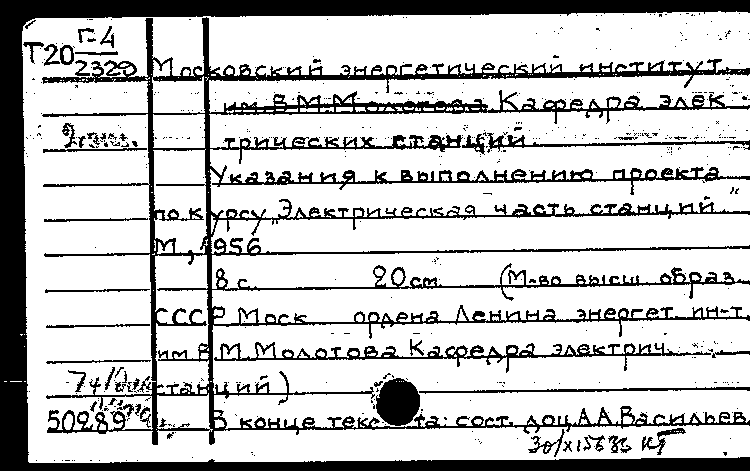 Т20 Г-4
2329 Московский энергетический институт
им. В.М.Молотова. Кафедра элек-
2 экз. трических станций.
Указания к выполнению проекта
по курсу „Электрическая часть станций"
М., 1956
8 с. 20 см. (М-во высш. образ.
СССР Моск. ордена Ленина энергет. ин-т
им В.М.Молотова Кафедра электрич.
станций)
50289 В конце текста: сост. доц А.А.Васильев.